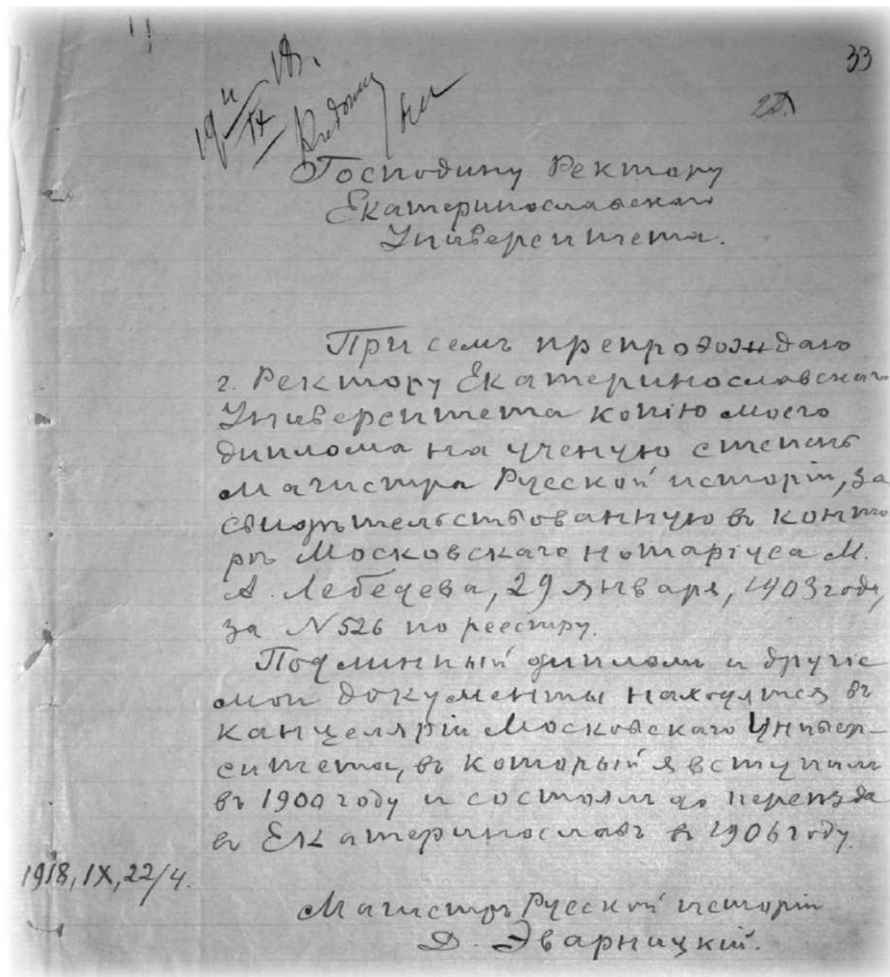 33
Господину Ректору
Екатеринославскаго
Университета.
При семъ препровождаю
г. Ректору Екатеринославскаго
Университета копію моего
диплома на ученую степень
магистра Русской исторіи, за
свидѣтельствованную въ конто
рѣ Московскаго нотаріуса М.
А. Лебедева, 29 января, 1903 года,
за N 526 по реестру.
Подлинный дипломъ и другіе
мои документы находятся въ
канцеляріи Московскаго Универ-
ситета, въ который я вступилъ
въ 1900 году и состоялъ до переѣзда
въ Екатеринославъ в 1906 году.
1918, IX, 22/4.
Магистръ Русской исторіи
Д. Эварницкій.